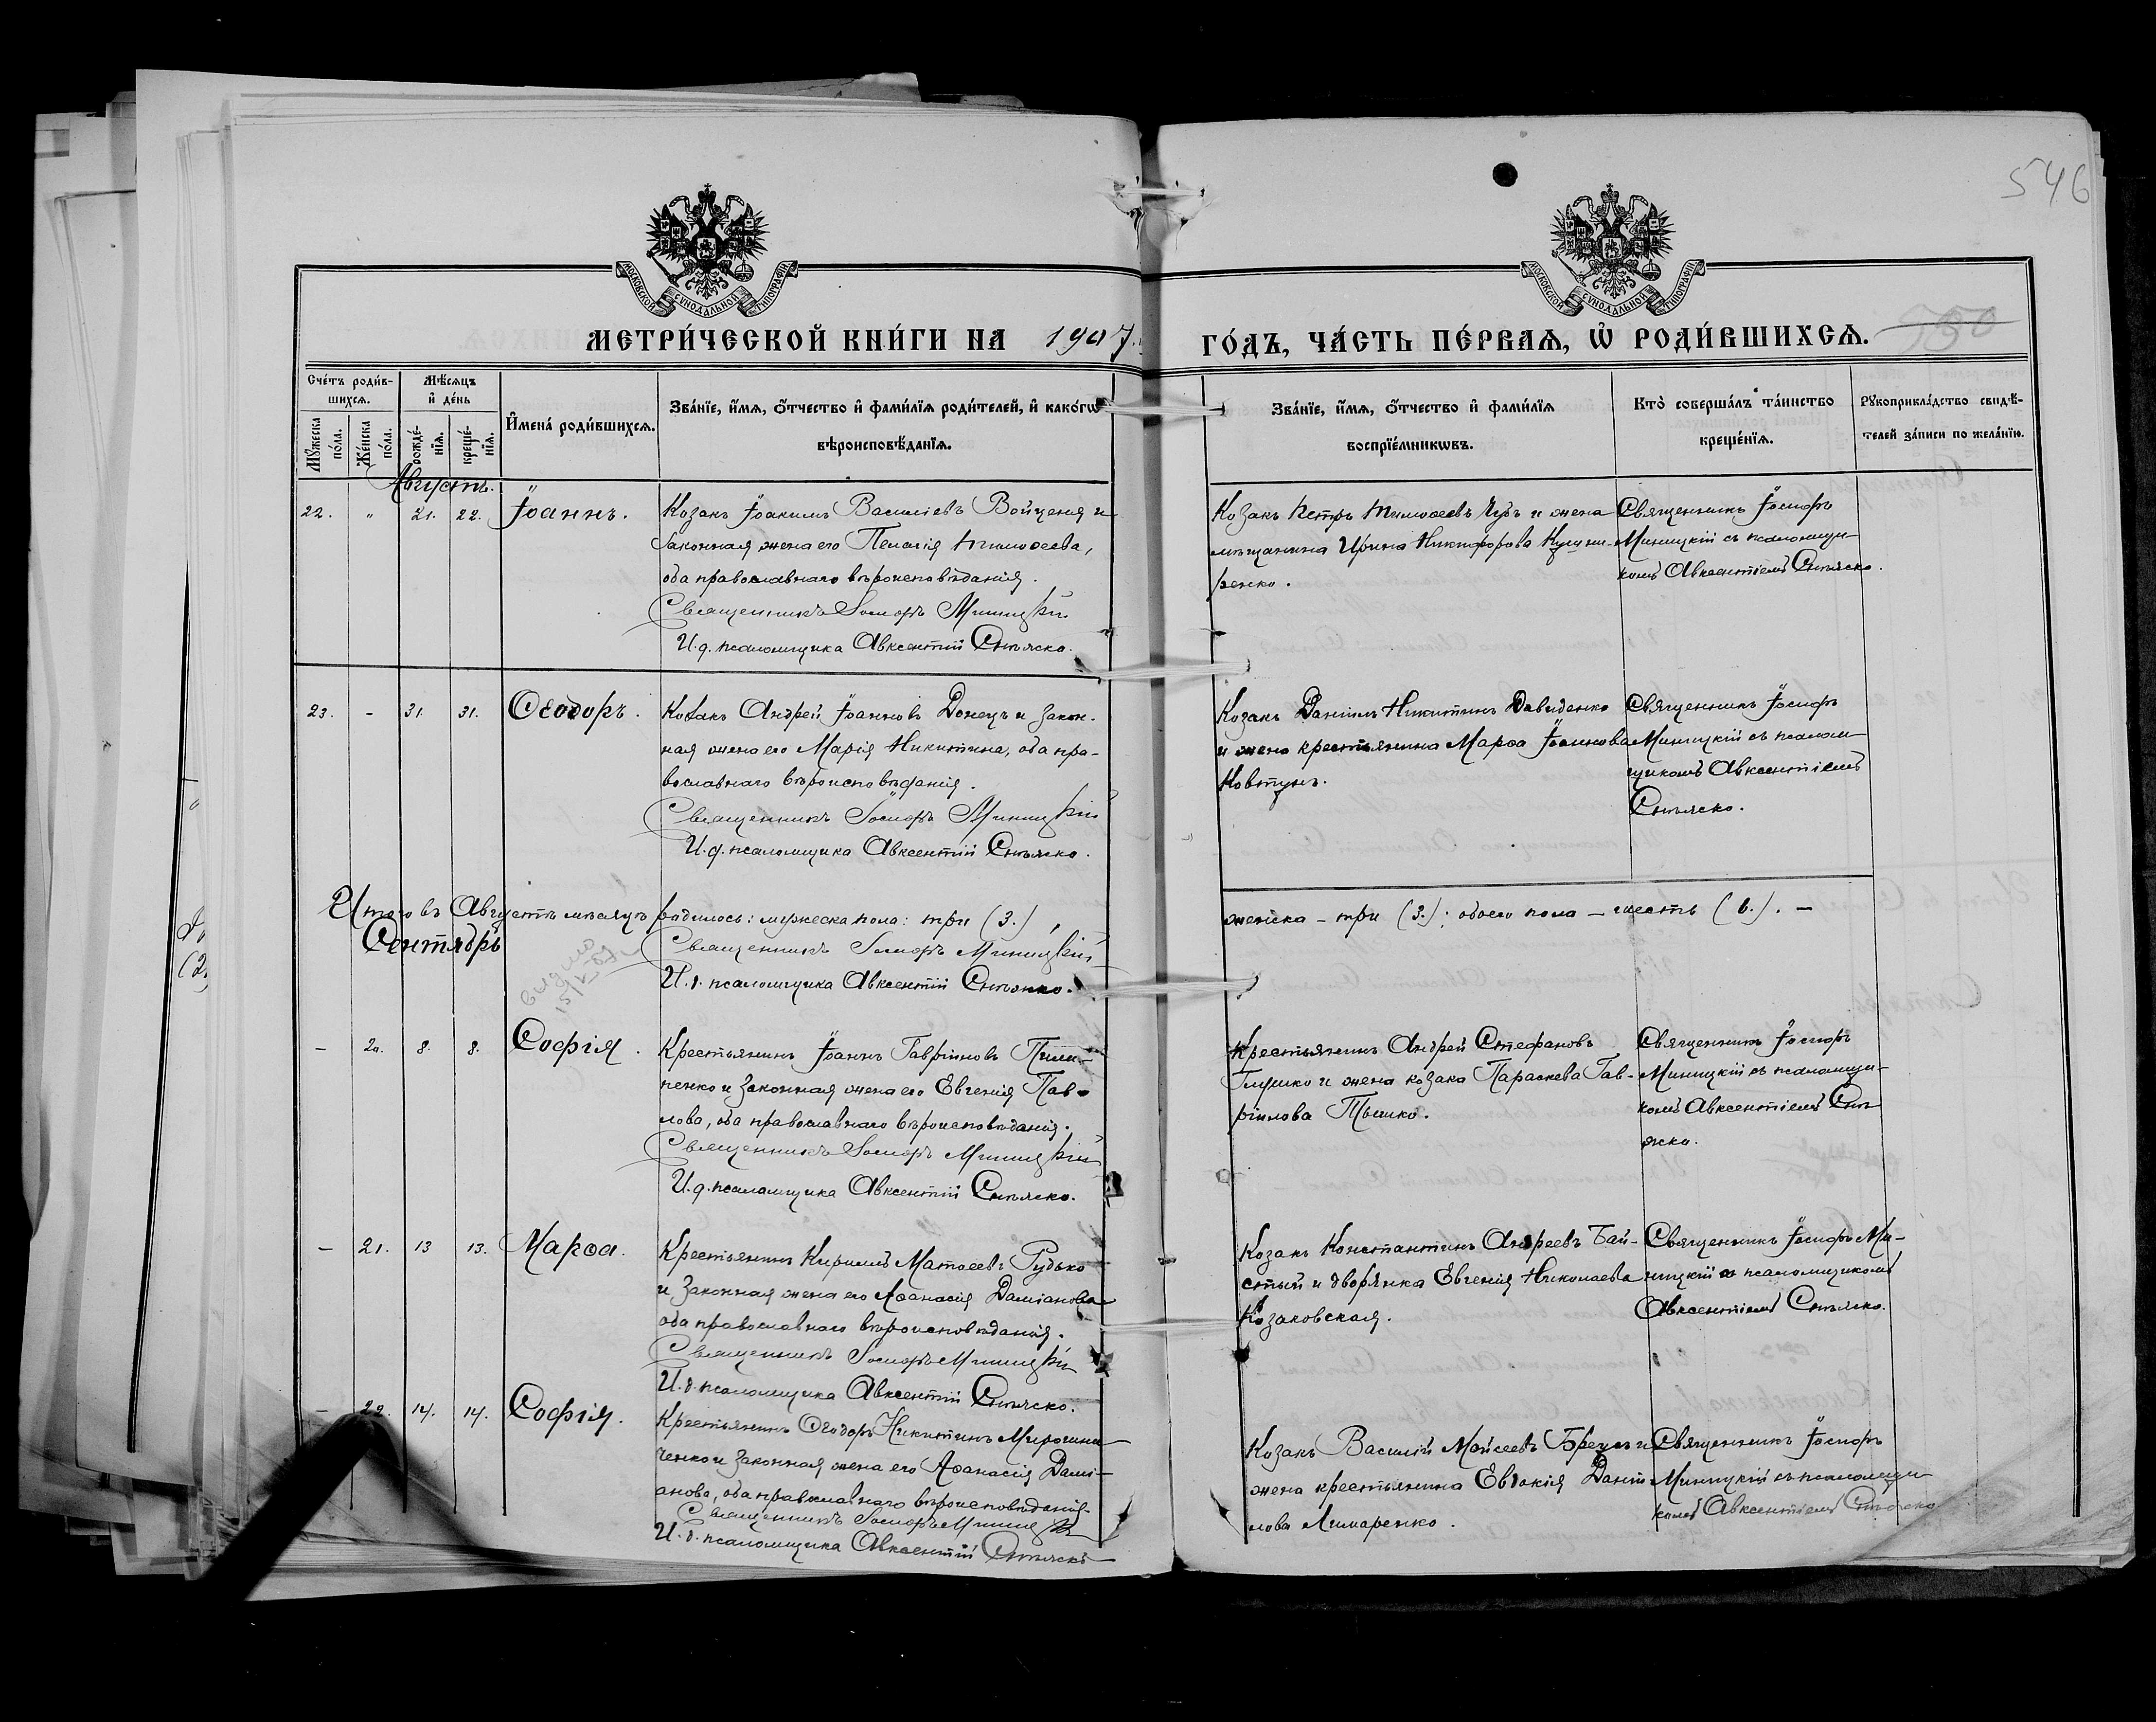 546
МОСКОВСКОЙ СУНОДАЛЬНОЙ ТИПОГРАФІИ
МОСКОВСКОЙ СУНОДАЛЬНОЙ ТИПОГРАФІИ
МЕТРИ́ЧЕСКОЙ КНИ́ГИ НА 1907.
ГО́ДЪ, ЧА́СТЬ ПЕ́РВАѦ, Ѡ҆ РОДИ́ВШИХСѦ. 550
Сче́тъ роди́в-
шихсѧ.
Мѣ́сѧцъ
и҆ де́нь
Мꙋ́жеска
по́ла.
Же́нска
по́ла.
рожде́-
нїѧ.
креще́-
нїѧ.
И҆мена̀ роди́вшихсѧ.
Зва́нїе, и҆́мѧ, ѻ҆́тчество и҆ фами́лїѧ роди́телей, и҆ како́гѡ
вѣроисповѣ́данїѧ.
Зва́нїе, и҆́мѧ, ѻ҆́тчество и҆ фами́лїѧ
воспрїе́мникѡвъ.
Кто̀ соверша́лъ та́инство
креще́нїѧ.
Рꙋкоприкла́дство свидѣ́-
телей за́писи по жела́нїю.
Августъ.
22. " 21. 22. Іоаннъ.
Козакъ Іоакимъ Василіевъ Войценя и
законная жена его Пелагія Тимоѳеева,
оба православнаго вѣроисповѣданія.
Священникъ Іосифъ Миницкій
И.д. псаломщика Авксентій Снѣжко.
Козакъ Петръ Тимоѳеевъ Чубъ и жена
мѣщанина Ирина Никифорова
ренко.
Священникъ Іосифъ
Миницкій съ псаломщи-
комъ Авксентіемъ
23. - 31. 31. Ѳеодоръ.
Козакъ Андрей Іоанновъ Донецъ и закон-
ная жена его Марія Никитина, оба пра-
вославнаго вѣроисповѣданія.
Священникъ Іосифъ Миницкій
И.д. псаломщика Авксентій
Козакъ Даніилъ Никитинъ Давиденко
и жена крестьянина Марѳа Іоаннова
Ковтунъ.
Священникъ Іосифъ
Миницкій съ псалом-
щикомъ Авксентіемъ
Итого въ Августѣ мѣсяцѣ родилось: мужеска пола: три (3.),
женска - три (3.); обоего пола - шесть (6.). -
Сентябрь
Священникъ Іосифъ Миницкій
И.д. псаломщика Авксентій
- 20. 8. 8. Софія.
Крестьянинъ Іоаннъ Гавріиловъ Пили-
пенко и законная жена его Евгенія Пав-
лова, оба православнаго вѣроисповѣданія.
Священникъ Іосифъ Миницкій
И.д. псаломщика Авксентій
Крестьянинъ Андрей Стефановъ
Глушко и жена козака Параскева Гав-
ріилова
Священникъ Іосифъ
Миницкій съ псаломщи-
комъ Авксентіемъ
- 21. 13 13. Марѳа.
Крестьянинъ Кириллъ Матѳеевъ Рудько
и законная жена его Аѳанасія Даміанова
оба православнаго вѣроисповѣданія.
Священникъ Іосифъ Миницкій
И.д. псаломщика Авксентій
Козакъ Константинъ Андреевъ Бай-
стый и дворянка Евгенія Николаева
Козаковская.
Священникъ Іосифъ Ми-
ницкій съ псаломщикомъ
Авксентіемъ
- 22. 14. 14. Софія.
Крестьянинъ Ѳеодоръ Никитинъ Мирошни-
ченко и законная жена его Аѳанасія Дамі-
анова, оба православнаго вѣроисповѣданія.
Священникъ Іосифъ Миницкій
И.д. псаломщика Авксентій
Козакъ Василій Мойсеевъ и
жена крестьянина Евдокія Даніи-
лова Лимаренко.
Священникъ Іосифъ
Миницкій съ псаломщи-
комъ Авксентіемъ